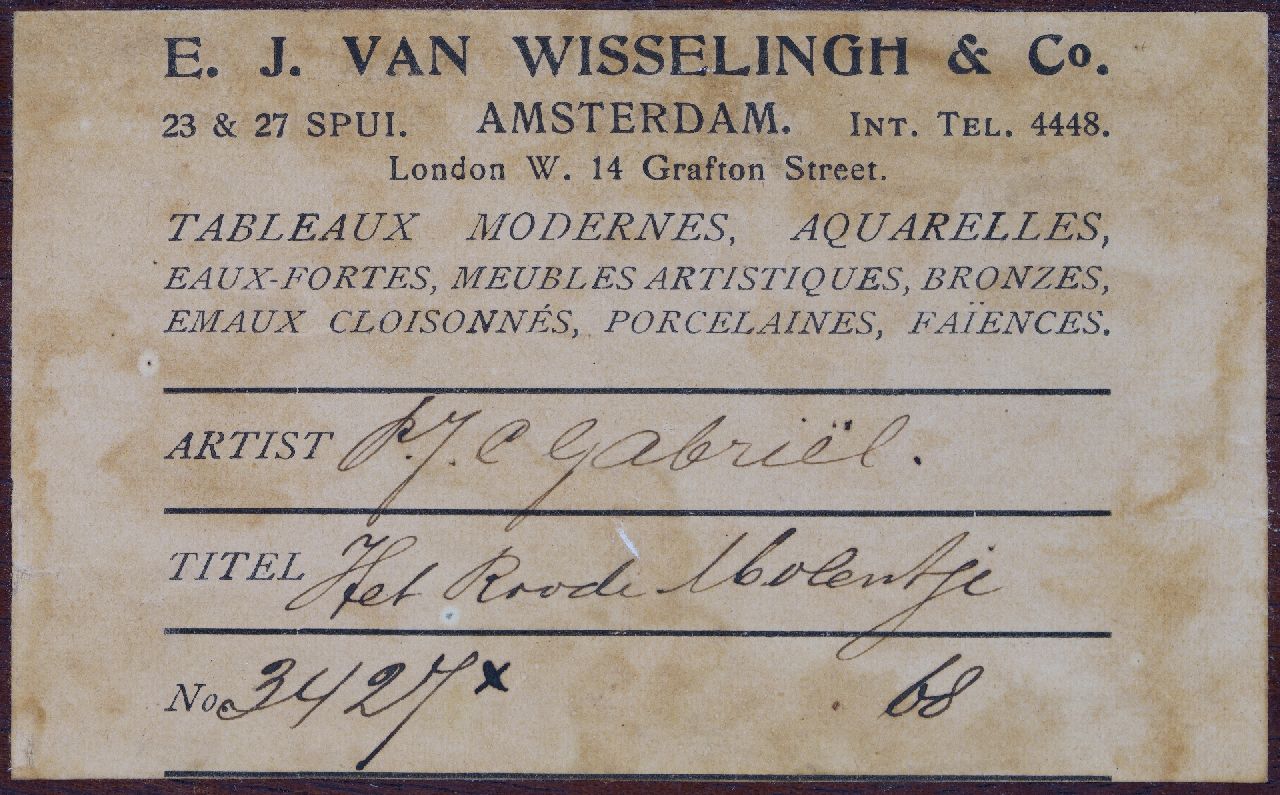 E. J. VAN WISSELINGH & Co.
23 & 27 SPUI. AMSTERDAM. INT. TEL. 4448.
London W. 14 Grafton Street.
TABLEAUX MODERNES, AQUARELLES,
EAUX-FORTES, MEUBLES ARTISTIQUES, BRONZES,
EMAUX CLOISONNÉS, PORCELAINES, FAÏENCES.
ARTIST P.J.C Gabriël.
TITEL Het Roode Molentje
No. 3427x 68